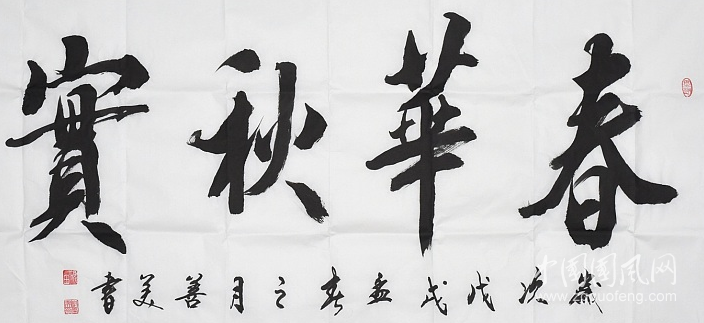 春華秋實
歲次戊戌孟春之月善美書
中国国风网
www.zgguofeng.com